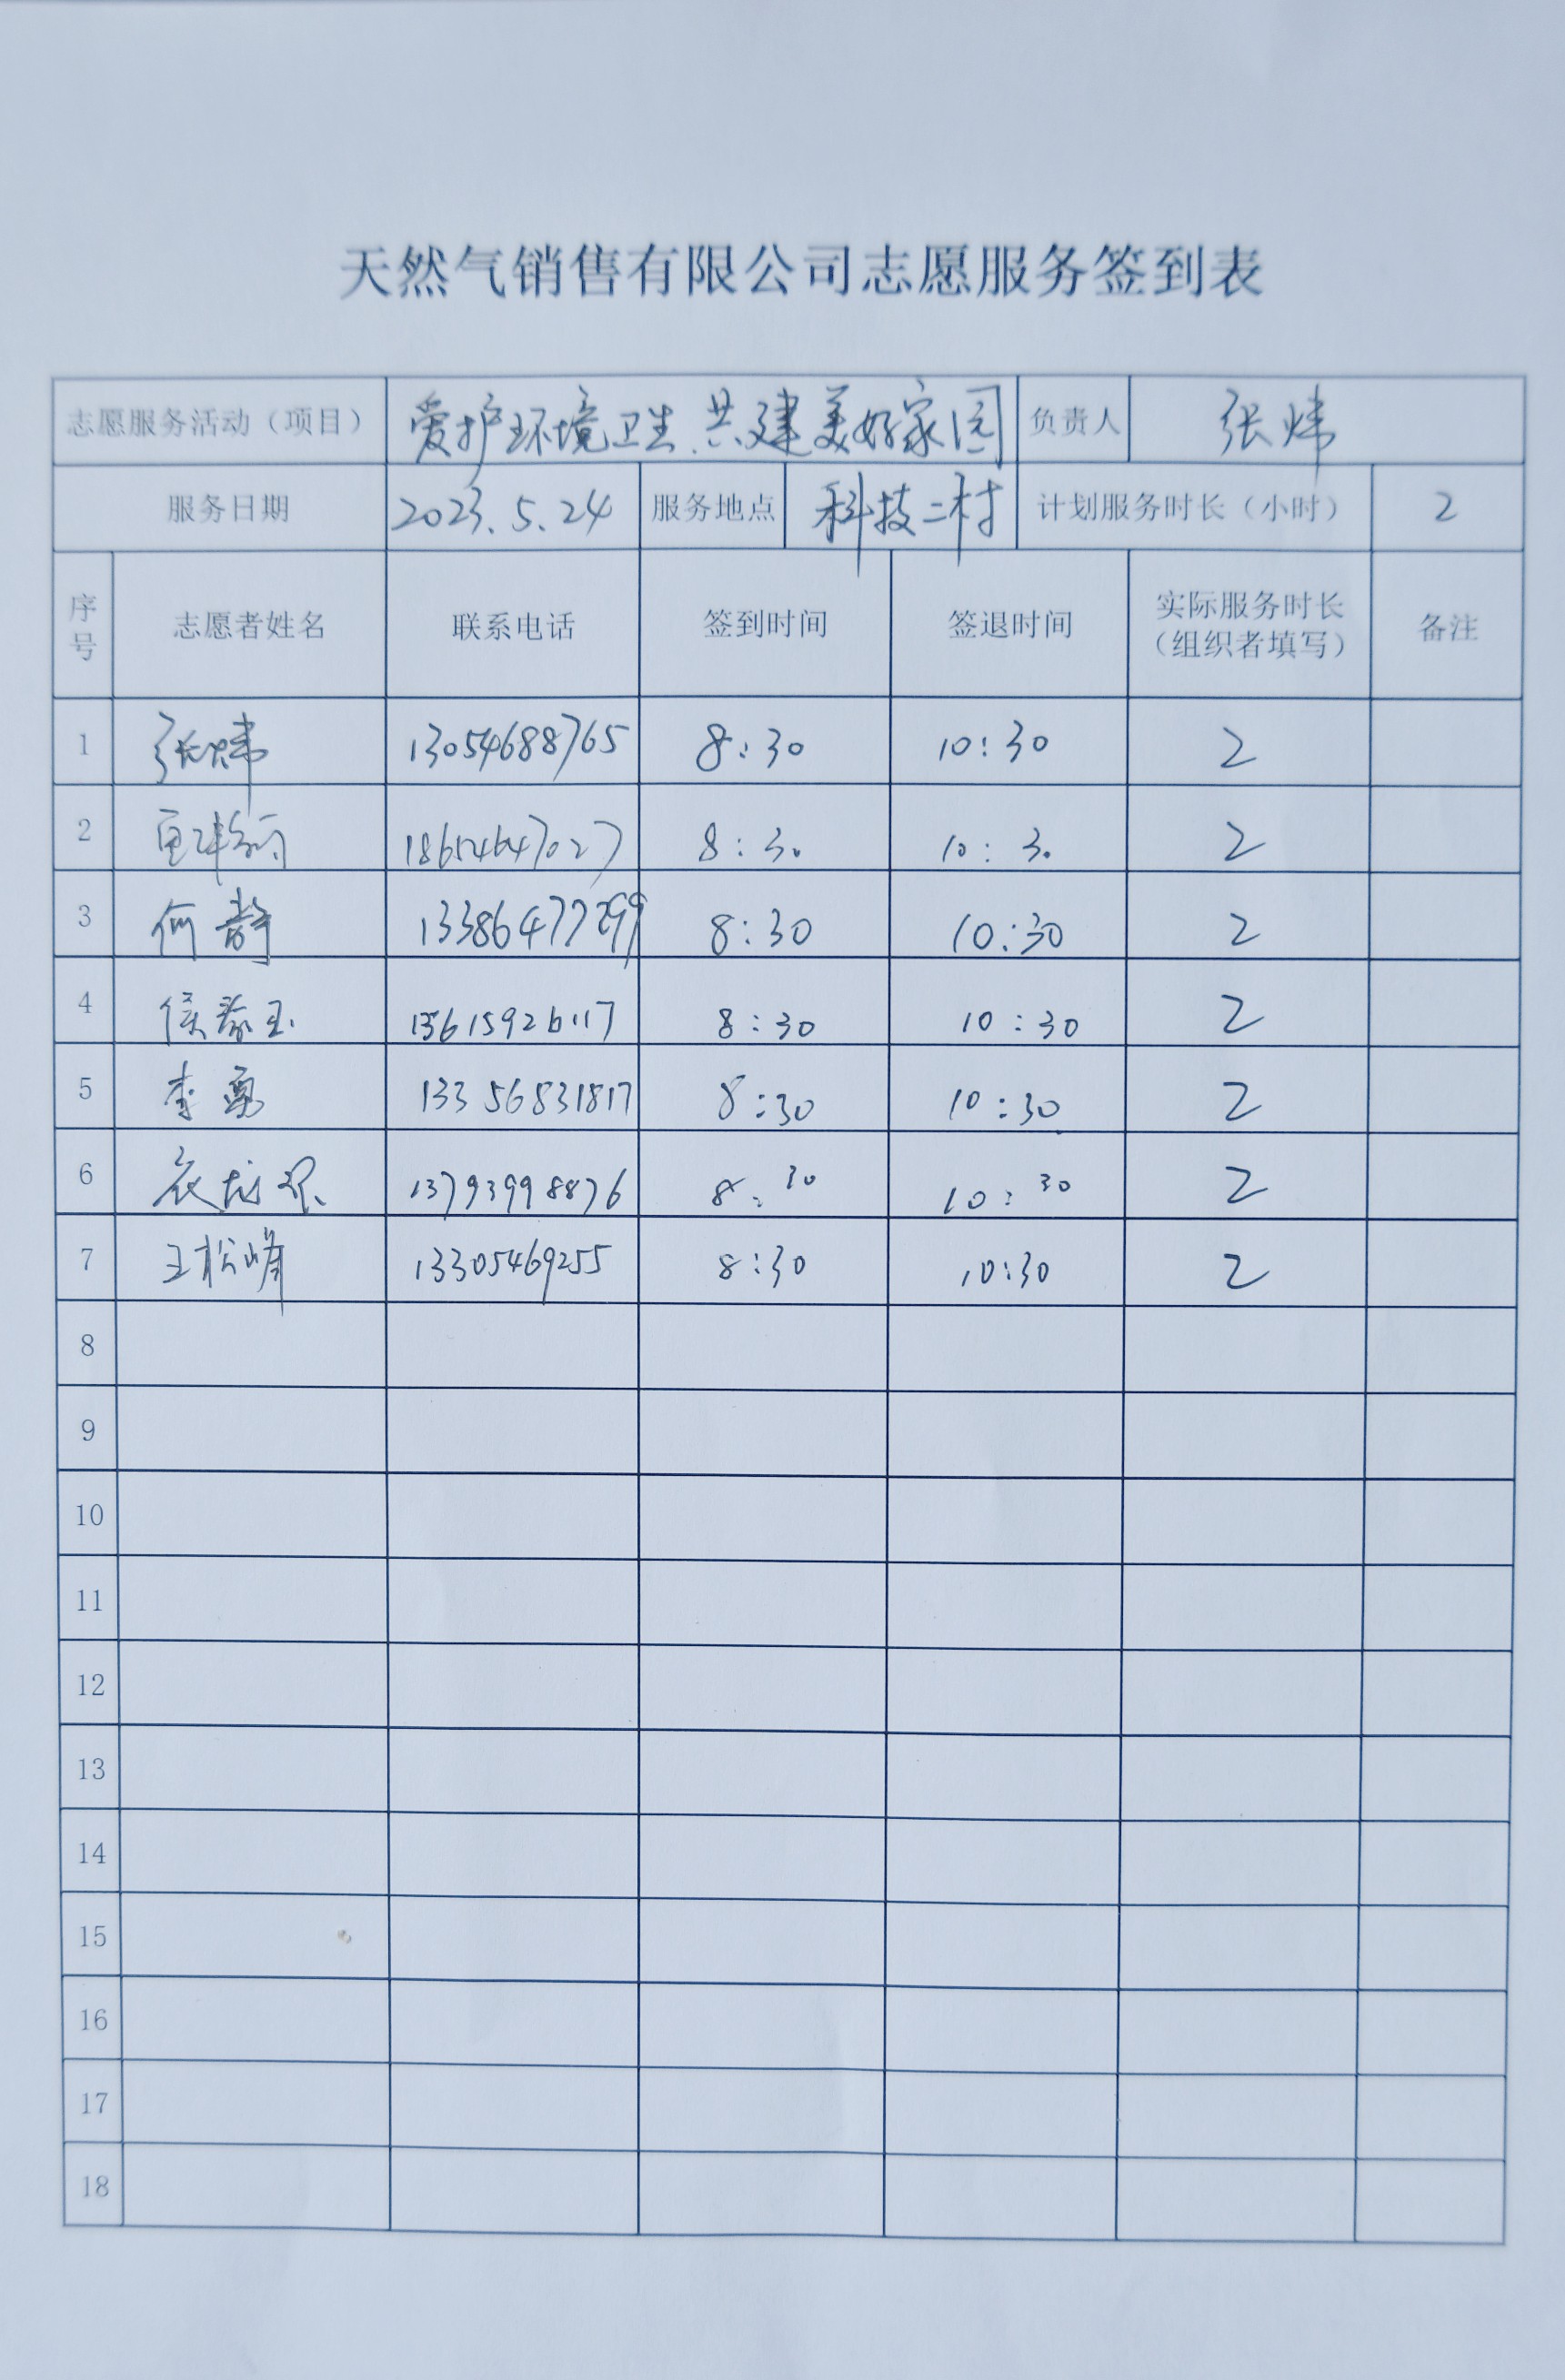 天然气销售有限公司志愿服务签到表
志愿服务活动（项目） 爱护环境卫生、共建美好家园 负责人 张炜
服务日期 2023.5.24 服务地点 科技二村 计划服务时长（小时） 2
序号 志愿者姓名 联系电话 签到时间 签退时间 实际服务时长（组织者填写） 备注
1 张炜 13054688765 8:30 10:30 2
2 18654647027 8:30 10:30 2
3 何静 13386477299 8:30 10:30 2
4 13615926117 8:30 10:30 2
5 李勇 13356831817 8:30 10:30 2
6 13793998876 8:30 10:30 2
7 王松峰 13305469255 8:30 10:30 2
8
9
10
11
12
13
14
15
16
17
18